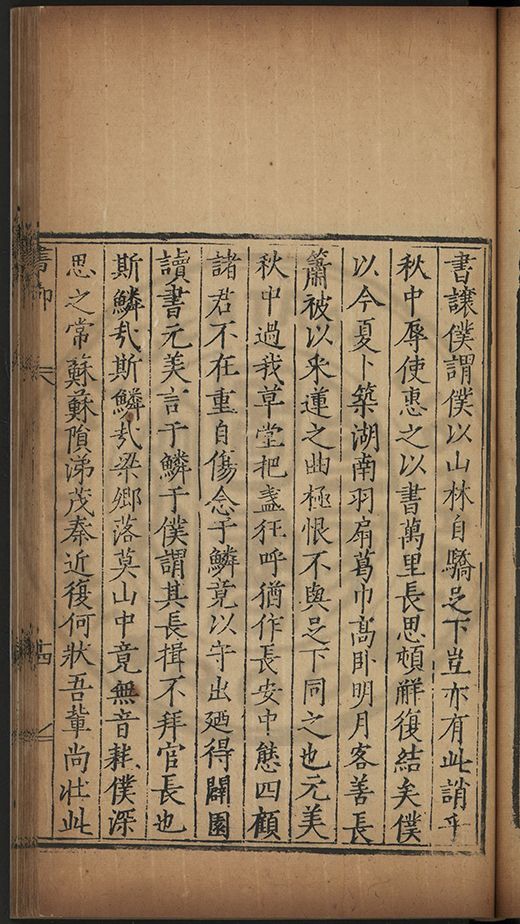 書讓僕謂僕以山林自驕足下豈亦有此誚乎
秋中辱使惠之以書萬里長思頓解復結矣僕
以今夏卜築湖南羽扇葛巾高卧明月客善長
簫被以采蓮之曲極恨不與足下同之也元美
秋中過我草堂把盞狂呼猶作長安中態四顧
諸君不在重自傷念子鱗竟以守出廼得闢園
讀書元美言于鱗于僕謂其長揖不拜官長也
斯鱗㢤斯鱗㢤梁鄉落莫山中竟無音耗僕深
思之常蘇蘇隕涕茂秦近復何狀吾輩尚壯此
十四